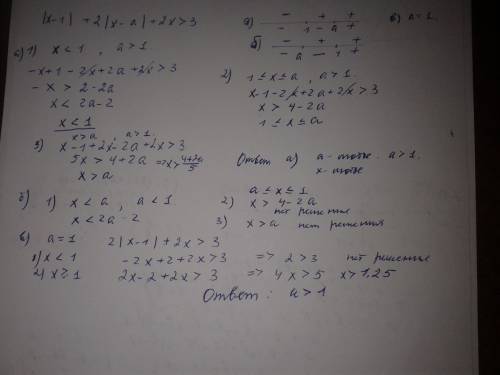 |x-1| + 2|x-a| + 2x > 3
а) - + +
- 1 - a +
б) - + +
- a - 1 +
в) a = 1.
а) 1) x < 1 , a > 1
-x+1-2x+2a+2x > 3
-x > 2-2a
x < 2a-2
x < 1
2) 1 ≤ x ≤ a , a > 1
x-1-2x+2a+2x > 3
x > 4-2a
1 ≤ x ≤ a
3) x > a , a > 1
x-1+2x-2a+2x > 3
5x > 4+2a => x > (4+2a)/5
x > a
Ответ а) a - любое . a > 1.
x - любое
б) 1) x < a , a < 1
x < 2a-2
2) a ≤ x ≤ 1
x > 4-2a
нет решения
3) x > a нет решения
в) a = 1 2|x-1| + 2x > 3
1) x < 1 -2x+2+2x > 3 => 2 > 3 нет решение
2) x ≥ 1 2x-2+2x > 3 => 4x > 5 x > 1,25
Ответ: a > 1